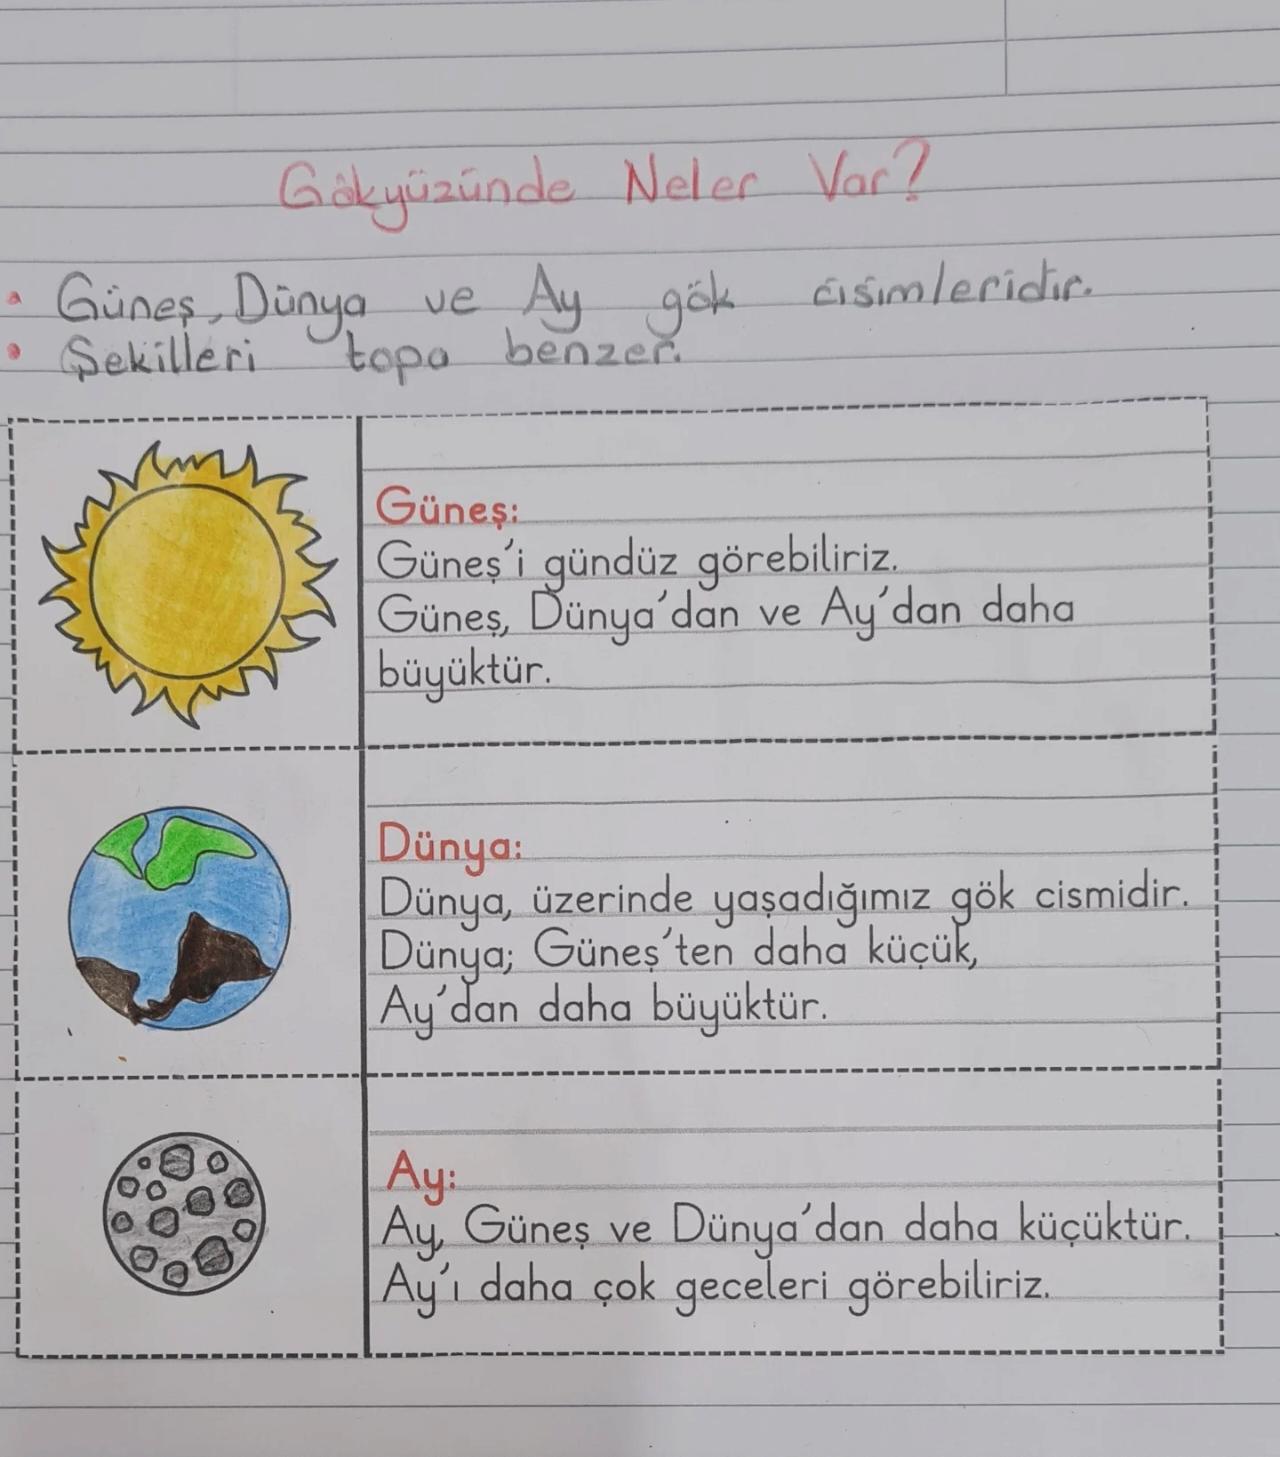 Gökyüzünde Neler Var?
• Güneş, Dünya ve Ay gök cisimleridir.
• Şekilleri topa benzer.
Güneş:
Güneş'i gündüz görebiliriz.
Güneş, Dünya'dan ve Ay'dan daha
büyüktür.
Dünya:
Dünya, üzerinde yaşadığımız gök cismidir.
Dünya; Güneş'ten daha küçük,
Ay'dan daha büyüktür.
Ay:
Ay, Güneş ve Dünya'dan daha küçüktür.
Ay'ı daha çok geceleri görebiliriz.